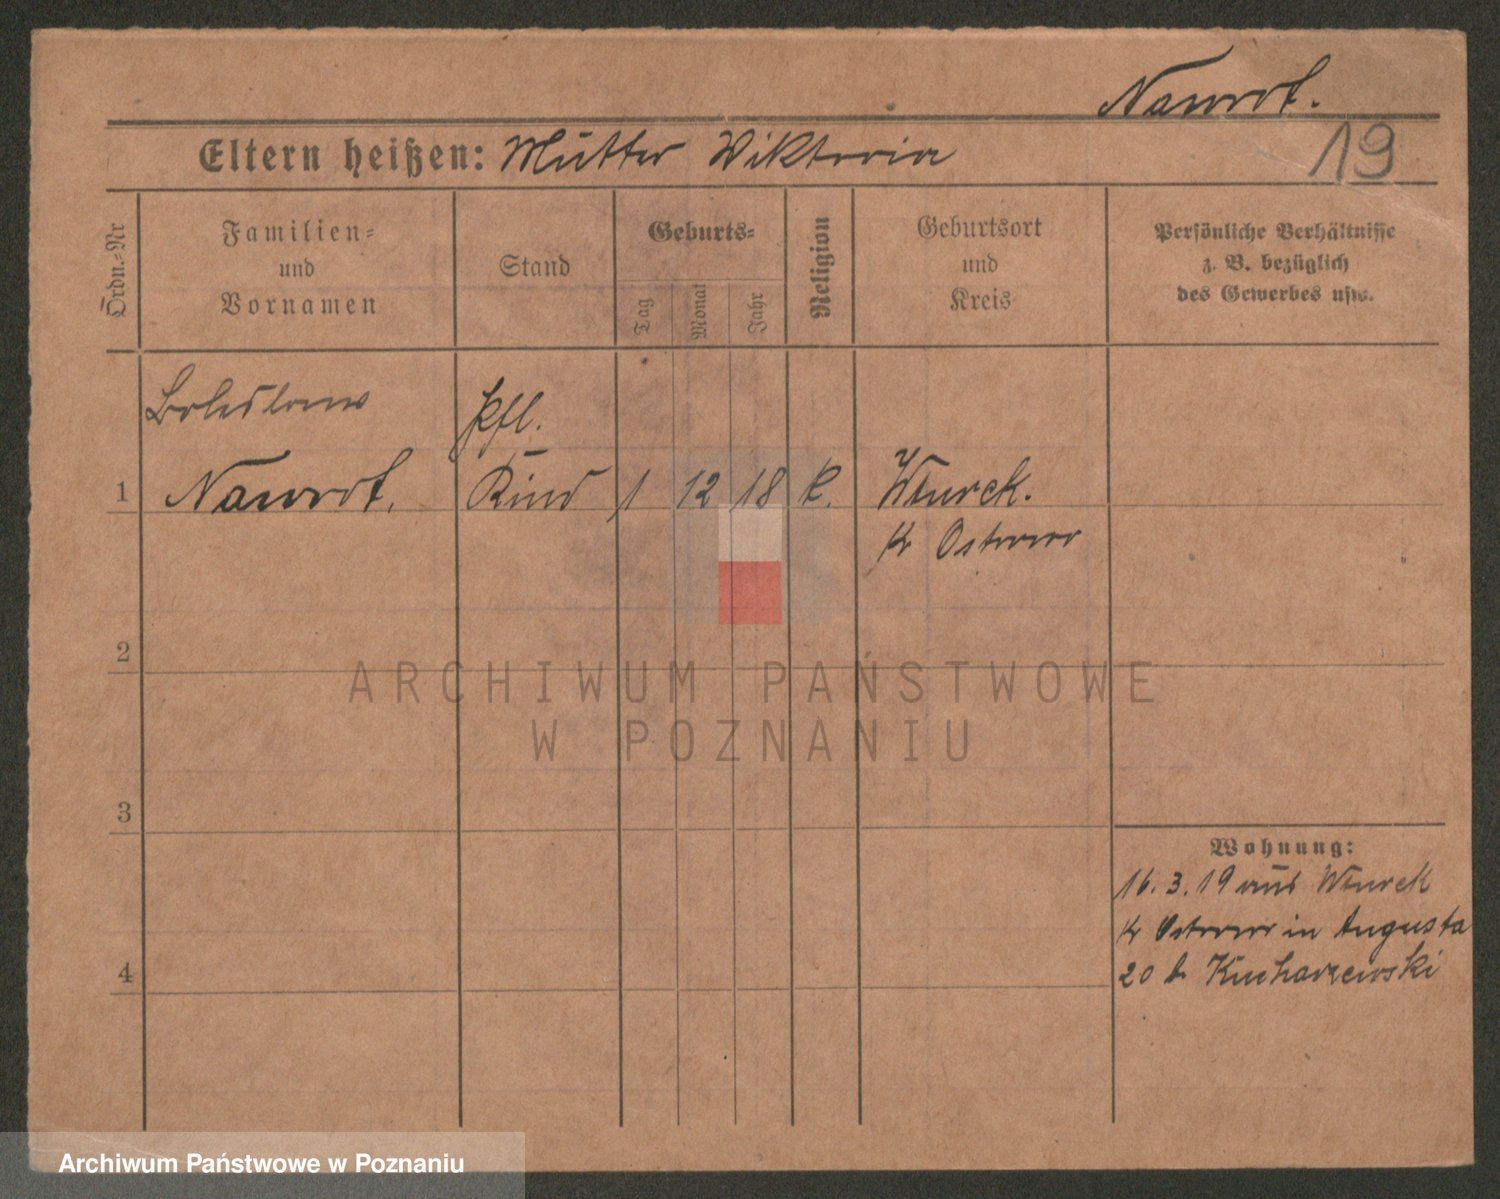 Nawrot.
19
Eltern heißen: Mutter Wiktoria
Ordn.-Nr
Familien-
und
Vornamen
Stand
Geburts-
Tag
Monat
Jahr
Religion
Geburtsort
und
Kreis
Persönliche Verhältnisse
z. B. bezüglich
des Gewerbes usw.
Boleslaus
Pfl.
1 Nawrot. Kind 1 12 18 k. Wturek.
Kr Ostrowo
2
3
4
Wohnung:
16.3.19 aus Wturek
Kr Ostrowo in Augusta
20 b Kucharzewski
ARCHIWUM PAŃSTWOWE
W POZNANIU
Archiwum Państwowe w Poznaniu